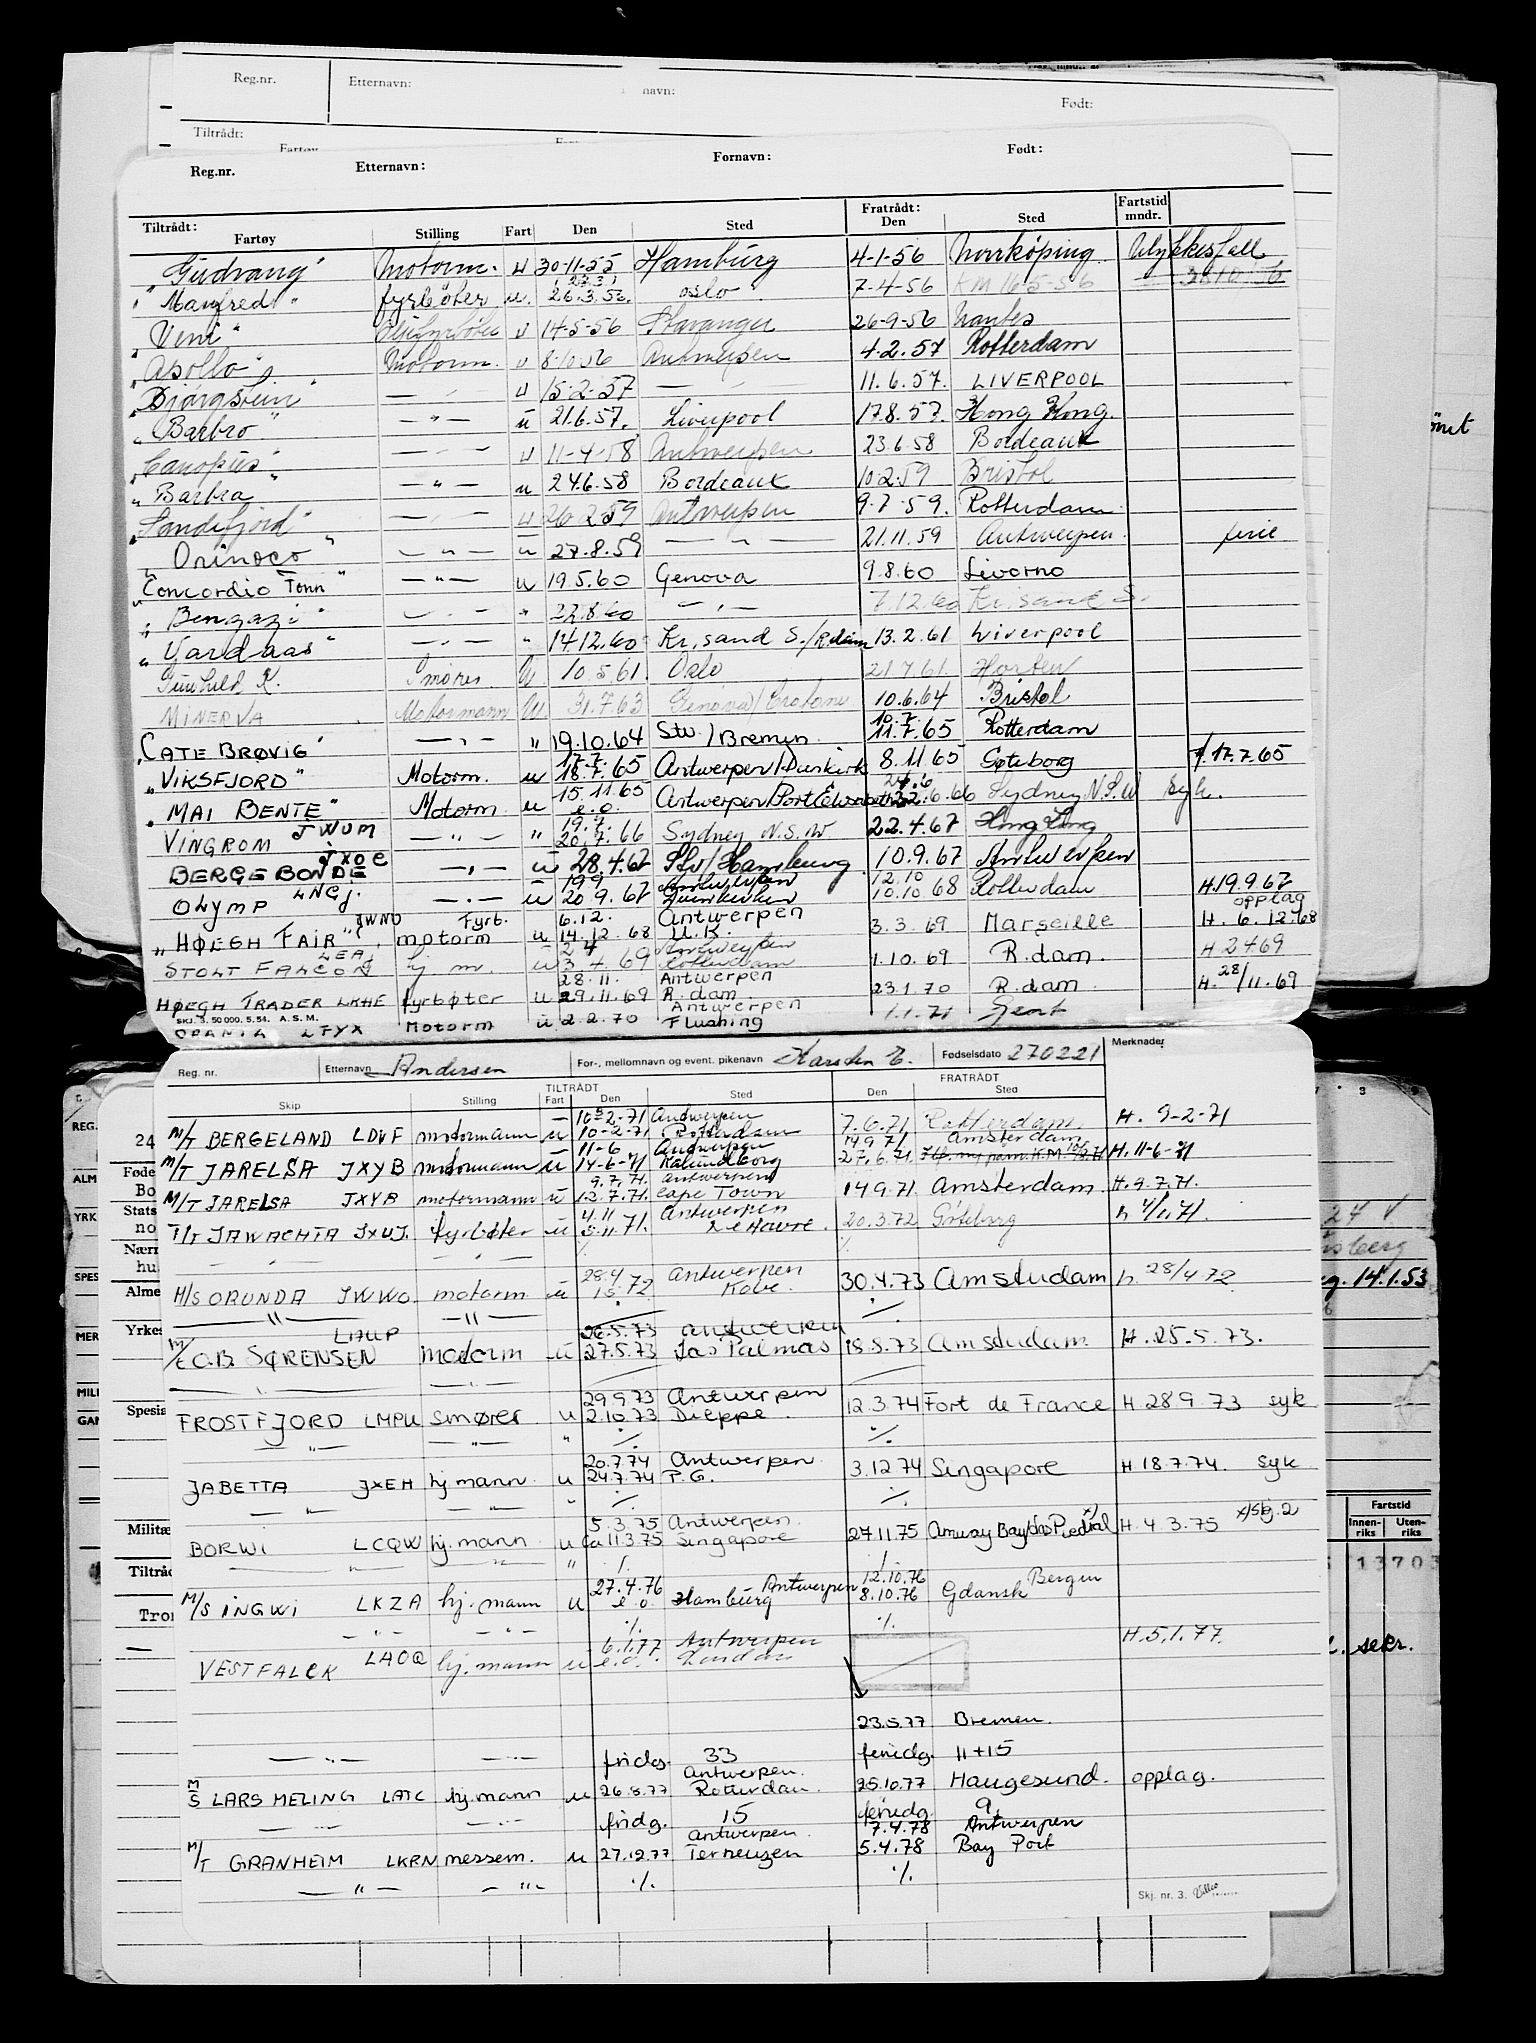 Reg.nr. Etternavn: navn: Født:
Tiltrådt:
Reg.nr. Etternavn: Fornavn: Født:
Tiltrådt: Fratrådt: Fartstid
Fartøy Stilling Fart Den Sted Den Sted mndr.
"Gudvang" Motorm. u 30-11-55 Hamburg 4-1-56 Norrköping Ulykkesfall
"Manfred" fyrbøter u. 26.3.56. Oslo 7-4-56 KM 16-5-56
"Veni" u 14-5-56 Stavanger 26-9-56 Nantes
"Apollo" Motorm. u 8-10-56 Antwerpen 4.2.57 Rotterdam
"Bjørgstein" — " — u 15-2-57 — " — 11.6.57. LIVERPOOL
"Barbro" — " — u 21.6.57. Liverpool 17.8.57. Hong Kong.
"Canopus" — " — u 11-4-58 Antwerpen 23.6.58 Bordeaux
"Barbra" — " — u 24.6.58 Bordeaux 10.2.59 Bristol
"Sandefjord" — " — u 26-2-59 Antwerpen 9.7.59. Rotterdam
"Orinoco" — " — u 27.8.59 — " — 21.11.59 Antwerpen. ferie
"Concordio Tonn" — " — u 19.5.60 Genova 9.8.60 Livorno
"Bengazi" — " — " 22.8.60 — " — 7.12.60 Kr.sand S.
"Vardaas" — " — " 14.12.60 Kr.sand S./R.dam 13.2.61 Liverpool
Gunhild K. Smører. u 10.5.61. Oslo 21.7.61. Horten
MINERVA Motormann u 31.7.63 Genova/Crotone 10.6.64 Bristol
10.7.
"CATE BRØVIG" — " — " 19.10.64 Stv./Bremen 11.7.65 Rotterdam
17.7.
"VIKSFJORD" Motorm. u 18.7.65 Antwerpen/Dunkirk 8.11.65 Gøteborg 17.7.65
15.11.65 24.6
"MAI BENTE" Motorm. u e.o. Antwerpen/Port Elisabeth 22.6.66 Sydney N.S.W Syk.
JWUM 19.7.
VINGROM — " — " 20.7.66 Sydney N.S.W 22.4.67 Hong Kong
JXOC
BERGE BONDE — " — u 28.4.67 Stv/Hamburg 10.9.67 Antwerpen
19.9 Antwerpen 12.10
OLYMP LNCJ. — " — u 20.9.67 Dunkirken 10.10 68 Rotterdam H.19.9.67
opplag
JWNO Fyrb. 6.12. Antwerpen
"HØEGH FAIR" motorm u 14.12.68 U.K. 3.3.69 Marseille H. 6.12.68
2.4 Antwerpen
STOLT FALCON hj. m. u 3.4.69 Rotterdam 1.10.69 R.dam. H 2.4.69
28.11. Antwerpen
HØEGH TRADER LKHE fyrbøter u 29.11.69 R.dam 23.1.70 R.dam H. 28/11.69
SKJ. 3. 50 000. 5.54. A.S.M. Antwerpen
LFYX Motorm u 2.2.70 Flushing 1.1.71 Gent
Reg. nr. Etternavn Andersen For-, mellomnavn og event. pikenavn Karsten E. Fødselsdato 270221 Merknader
TILTRÅDT FRATRÅDT
Skip Stilling Fart Den Sted Den Sted
10-2-71 Antwerpen
M/T BERGELAND LDVF motormann u 10-2-71 Rotterdam 7.6.71 Rotterdam H. 9-2-71
11-6 Antwerpen 14.9.71. Amsterdam
M/T JARELSA JXYB motormann u 14-6-71 Kalundborg 27.6.71. H. 11-6-71
9.7.71. Antwerpen
M/T JARELSA JXYB motormann u 12.7.71. Cape Town 14.9.71 Amsterdam. H.9.7.71.
4.11 Antwerpen
T/T JAWACHTA JXUJ. fyrbøter u 5.11.71. Le Havre. 20.3.72 Gøteborg h 4/11.71.
— " — — " — ./. ./.
28.4 Antwerpen
M/S ORUNDA JWWO. motorm u 1.5.72 Kobe. 30.4.73 Amsterdam h. 28/4.72
— " — — " — ./. ./.
LHUP 26.5.73 Antwerpen
M/T O.B. SØRENSEN motorm u 27.5.73 Las Palmas 18.8.73 Amsterdam. H. 25.5.73.
— " —
29.9.73 Antwerpen
FROSTFJORD LMPU smører u 2.10.73 Dieppe. 12.3.74 Fort de France H 28.9 73 syk
— " — — " — " ./. ./.
20.7.74 Antwerpen
JABETTA JXEH hj.mann. u 24.7.74 P.G. 3.12.74 Singapore H 18.7.74. syk
— " — — " — " ./. ./.
5.3.75 Antwerpen.
BORWI LCQW hj.mann u Ca 11.3.75 Singapore 27.11.75 Amuay Bay H. 4.3.75 x/Skj.2
— " — — " — " ./. ./.
27.4.76 Antwerpen 12.10.76 Bergen
M/S INGWI LKZA hj. mann u e.o. Hamburg 8.10.76 Gdansk
— " — — " — ./. ./.
6.1.77 Antwerpen H.5.1.77.
VESTFALCK LAOQ hj. mann u e.o. London
23.5.77 Bremen.
— " — — " — fridg. 33 feriedg. 11+15
Antwerpen.
M/S LARS MELING LATC hj.mann u 26.8.77 Rotterdam. 25.10.77 Haugesund. opplag.
— " — — " — fridg. 15 feriedg. 9.
Antwerpen. 7.4.78 Antwerpen
M/T GRANHEIM LKRN messem. u 27.12.77 Terneuzen 5.4.78 Bay Port
— " — — " — ./. ./.
Skj. nr. 3.
REG.
24
Føde
Bo
Stats
no
Nærn
hu
Alme
Yrkes
Spesia
Militæ
Tiltråd
Tro
ALM
YRK
SPES
MER
MILI
GAN
24 V
14.1.53
Fartstid
Innen-riks Uten-riks
13703
sekr.